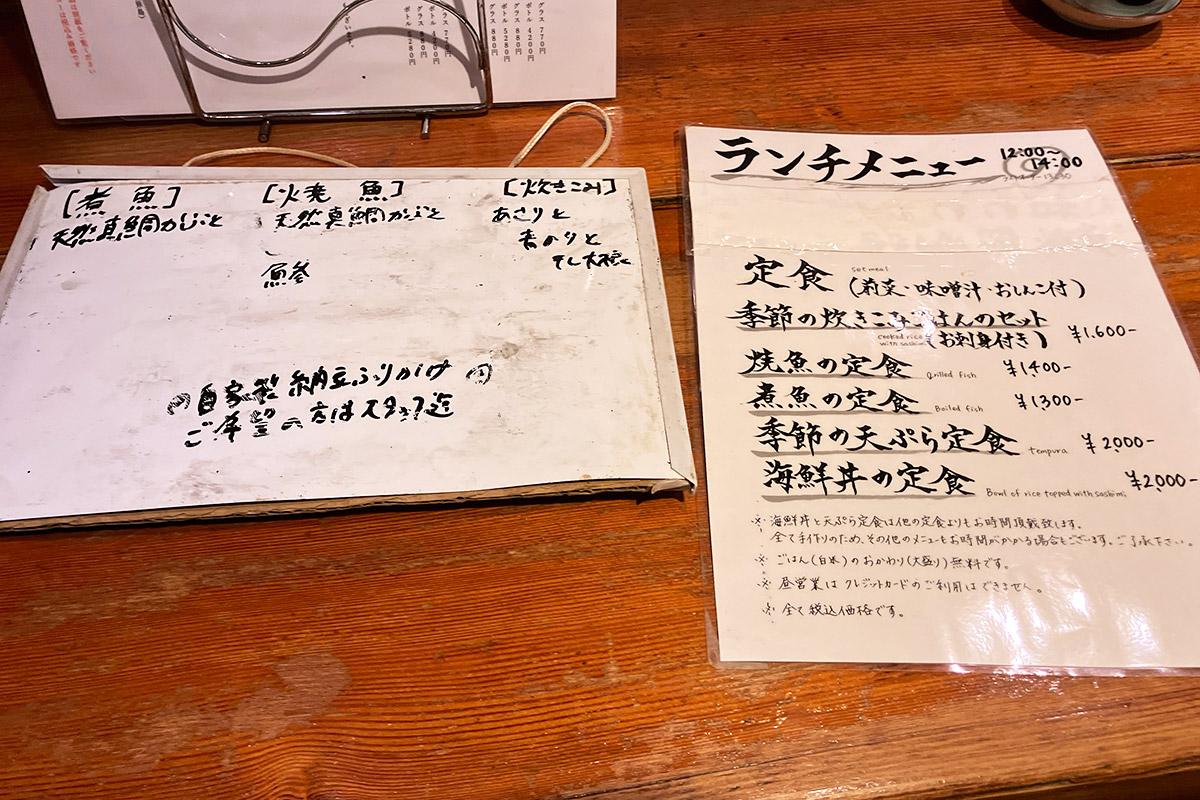 グラス 770円
ボトル 4200円
グラス 880円
ボトル 5280円
グラス 880円
[煮魚]
天然真鯛かぶと
[焼魚]
天然真鯛かぶと
[炊きこみ]
あさりと
青のりと
自家製 納豆ふりかけ
ご希望の方はスタッフ迄
ランチメニュー
12:00~
14:00
定食 set meal
(前菜・味噌汁・おしんこ付)
季節の炊きこみごはんのセット
cooked rice with sashimi (お刺身付き) ¥1,600-
焼魚の定食 Grilled fish ¥1400-
煮魚の定食 Boiled fish ¥1300-
季節の天ぷら定食 tempura ¥2,000-
海鮮丼の定食 Bowl of rice topped with sashimi ¥2,000-
※ 海鮮丼と天ぷら定食は他の定食よりもお時間頂戴致します。
全て手作りのため、その他のメニューもお時間がかかる場合もございます。ご了承下さい。
※ ごはん(白米)のおかわり(大盛り)無料です。
※ 昼営業は クレジットカードのご利用はできません。
※ 全て税込価格です。